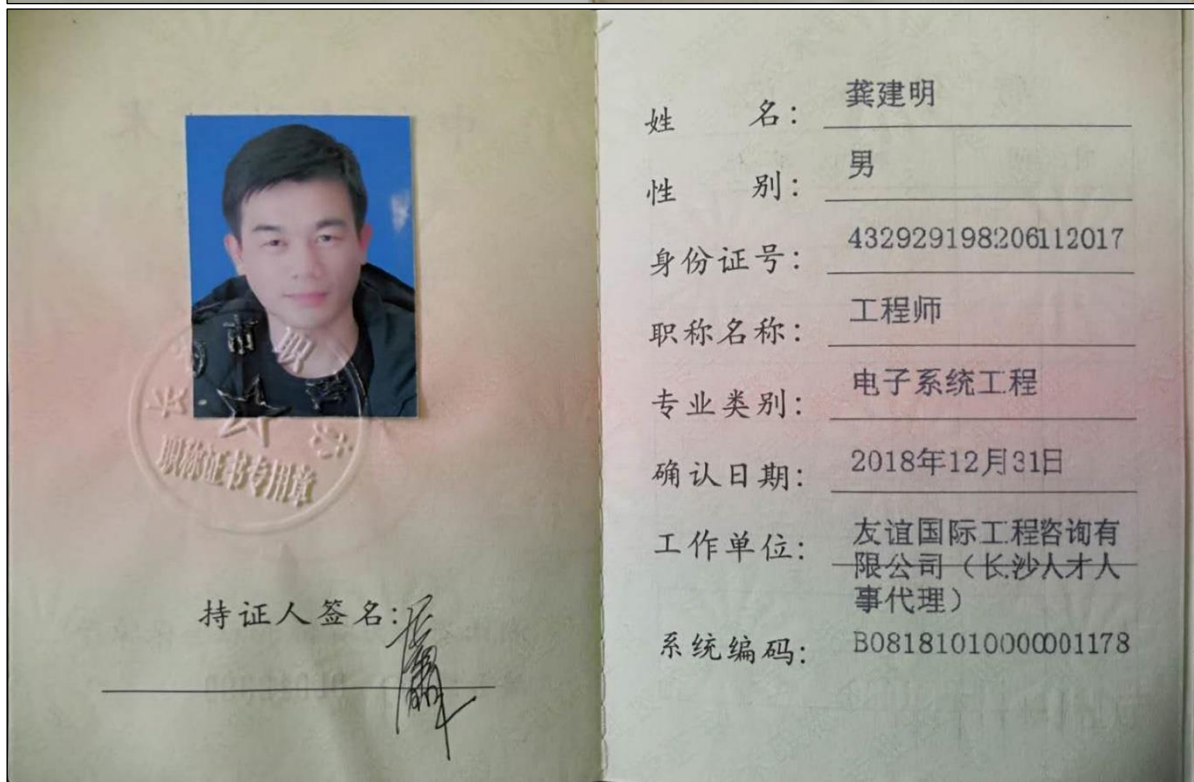 职称证书专用章
持证人签名:
姓 名: 龚建明
性 别: 男
身份证号: 432929198206112017
职称名称: 工程师
专业类别: 电子系统工程
确认日期: 2018年12月31日
工作单位: 友谊国际工程咨询有
限公司（长沙人才人
事代理）
系统编码: B08181010000001178